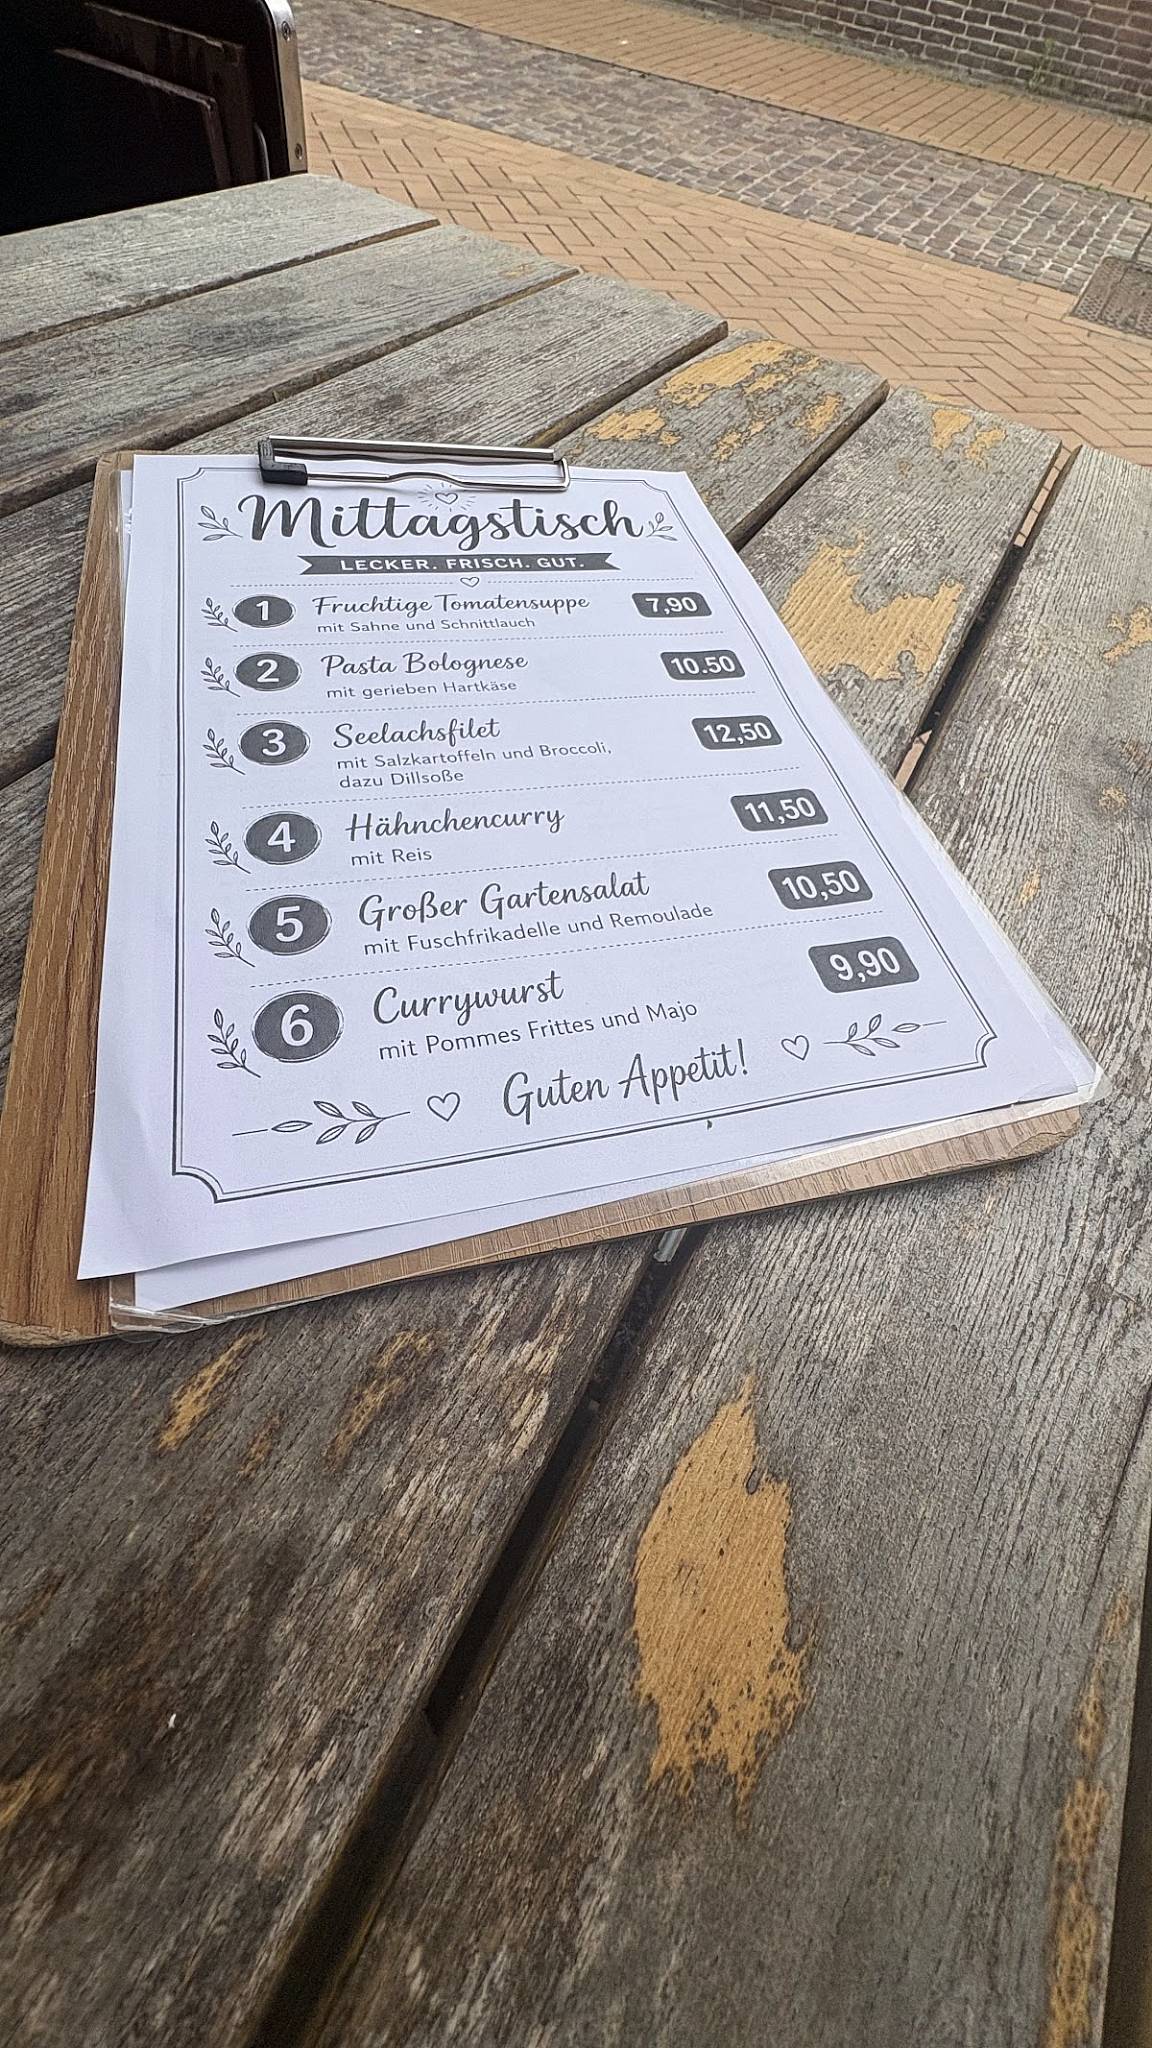 Mittagstisch
LECKER. FRISCH. GUT.
1 Fruchtige Tomatensuppe 7,90
mit Sahne und Schnittlauch
2 Pasta Bolognese 10.50
mit gerieben Hartkäse
3 Seelachsfilet 12,50
mit Salzkartoffeln und Broccoli,
dazu Dillsoße
4 Hähnchencurry 11,50
mit Reis
5 Großer Gartensalat 10,50
mit Fuschfrikadelle und Remoulade
6 Currywurst 9,90
mit Pommes Frittes und Majo
Guten Appetit!